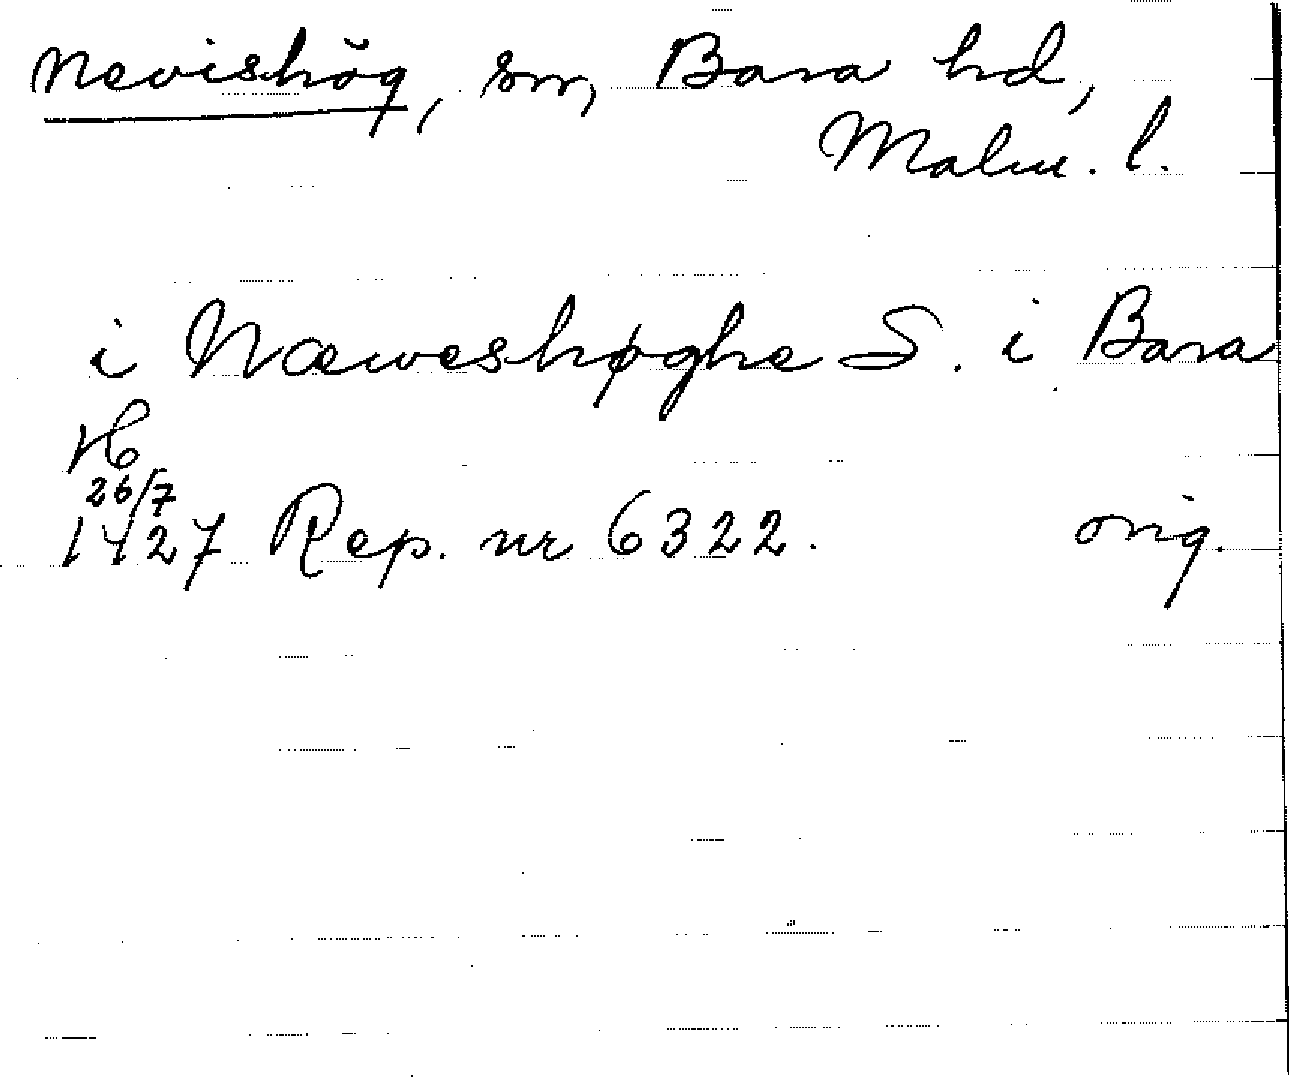 Nevishög, sn, Bara hd,
Malm. l.
i Næweshøghe S. i Bara
H
26/7
1427 Rep. nr 6322. orig.